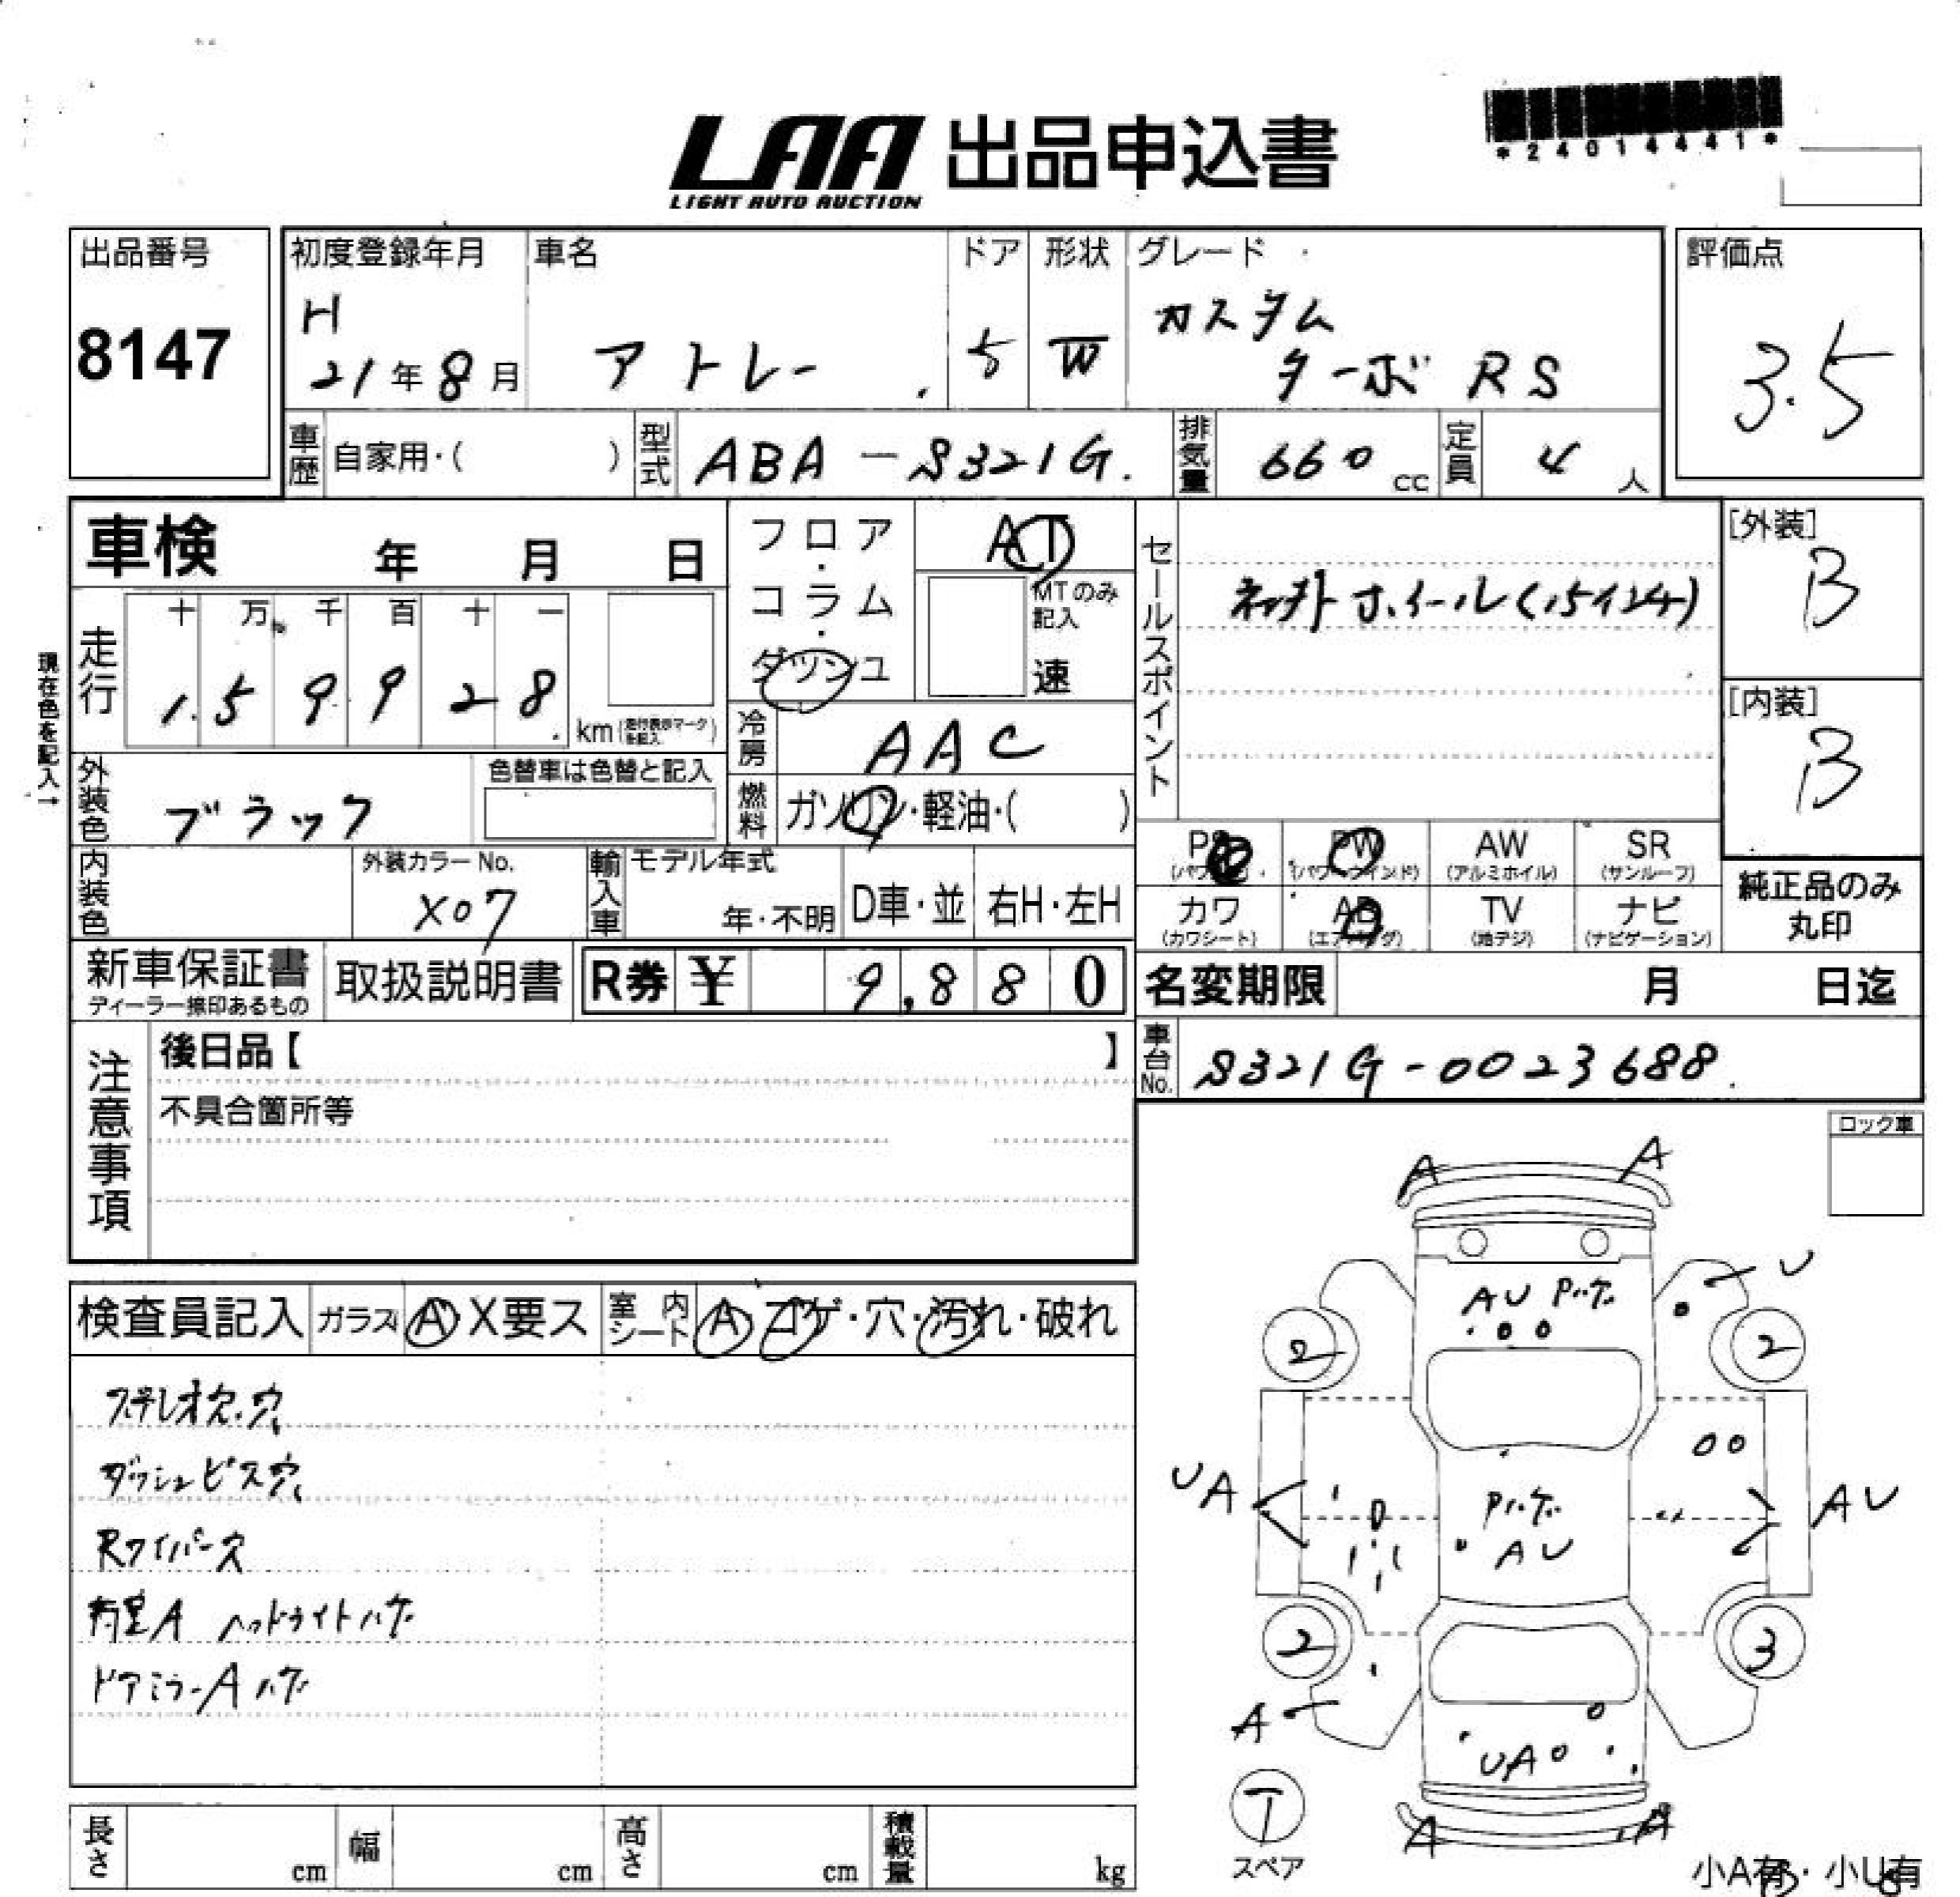 LAA 出品申込書
LIGHT AUTO AUCTION
*24014441*
出品番号
8147
初度登録年月
H
21年8月
車名
アトレー
ドア
5
形状
W
グレード
カスタム
ターボ RS
評価点
3.5
車歴
自家用・( )
型式
ABA-S321G.
排気量
660 cc
定員
4 人
車検 年 月 日
フロア・コラム・ダッシュ
AT
MTのみ記入
速
セールスポイント
ネット ホイール(15インチ)
[外装]
B
[内装]
B
現在色を記入→
走行
十 万 千 百 十 一
1.5 9 9 2 8
km (走行表示マークを記入)
冷房
AAC
外装色
ブラック
色替車は色替と記入
燃料
ガソリン・軽油・( )
内装色
外装カラーNo.
X07
輸入車
モデル年式
年・不明
D車・並
右H・左H
PS
(パワステ)
PW
(パワーウインド)
AW
(アルミホイル)
SR
(サンルーフ)
カワ
(カワシート)
AB
(エアバッグ)
TV
(地デジ)
ナビ
(ナビゲーション)
純正品のみ
丸印
新車保証書
ディーラー捺印あるもの
取扱説明書
R券 ¥ 9,880
名変期限 月 日迄
車台No.
S321G-0023688.
注意事項
後日品【 】
不具合箇所等
ロック車
検査員記入
ガラス A X要ス
室内シート A コゲ・穴・汚れ・破れ
ステレオ欠.穴
ダッシュビス穴
Rワイパー欠
ヘッドライトハゲ
ドアミラーA ハゲ
A A
U
AU Pハゲ
2 2
UA
Pハゲ
AU
AU
2 3
A
UA
T
スペア
A A
長さ cm
幅 cm
高さ cm
積載量 kg
小A有・小U有